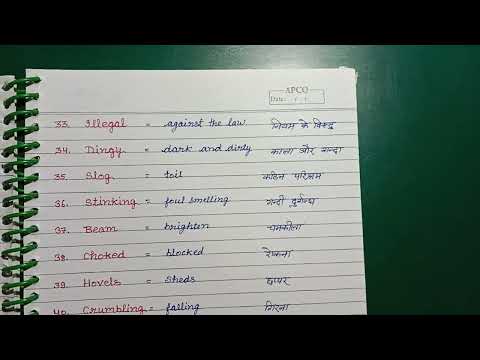 APCO
Date: / /
33. Illegal = against the law नियम के विरुद्ध
34. Dingy = dark and dirty काला और गन्दा
35. Slog = toil कठिन परिश्रम
36. Stinking = foul smelling गन्दी दुर्गन्ध
37. Beam = brighten चमकीला
38. Choked = blocked रोकना
39. Hovels = sheds छप्पर
40. Crumbling = falling गिरना